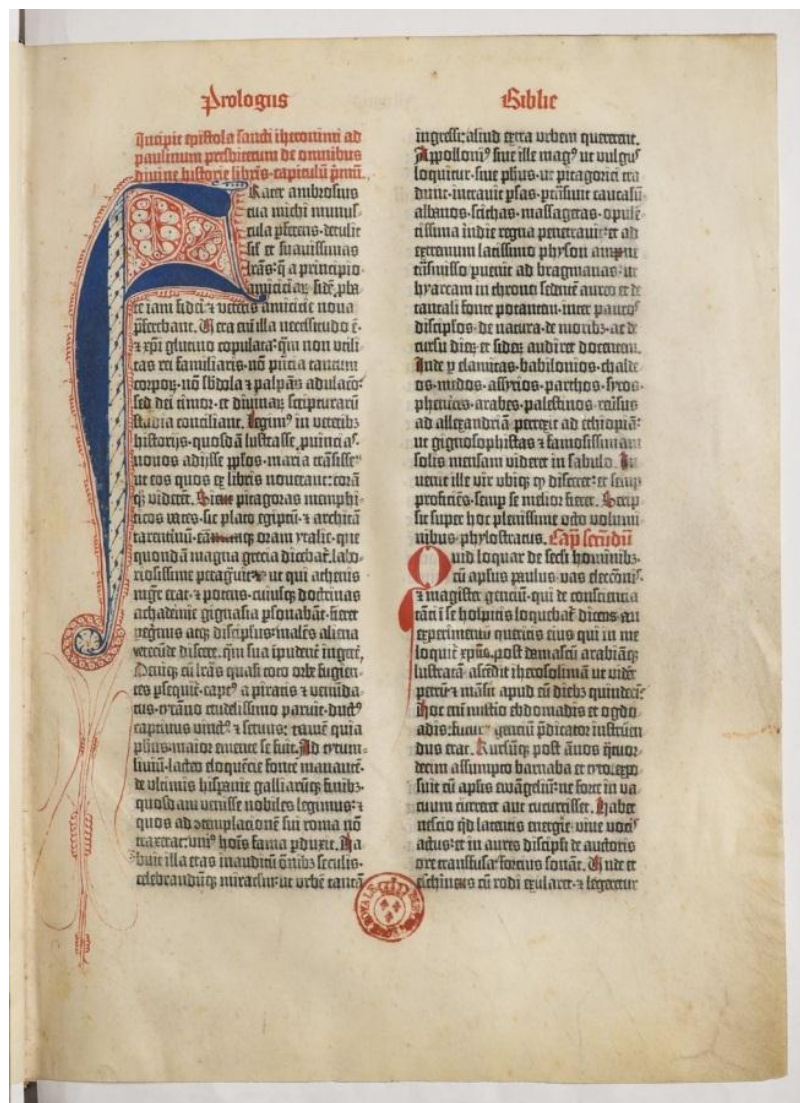 Prologus
Biblie
Incipit epistola sancti iheronimi ad
paulinum presbiterum de omnibus
divine historie libris·capitulū pmū.
Frater ambrosius
tua michi munus-
cula pferens·detulit
sil et suavissimas
lrās:q̄ a principio
amiciciaꝝ· fidē pba
te iam fidei ⁊ veteris amicicie nova
pferebant. Vera eni illa necessitudo ē·
⁊ xpi glutino copulata:qm̄ non utili
tas rei familiaris·nō pntia tantum
corpoꝝ·nō sbdola ⁊ palpās adulacō·
sed dei timor·et divinaꝝ scripturarū
studia conciliant. Legimꝰ in veteribꝫ
historijs·quosdā lustrasse puinciaˢ·
novos adijsse pplos·maria trāsisse·
ut eos quos ex libris noverant:corā
qꝫ viderēt. Sicut pitagoras memphi-
ticos vates·sic plato egiptū·⁊ architā
tarentinū·eādemqꝫ oram ytalie·que
quondā magna grecia dicebat̄·labo-
riosissime peragᵛit:et ut qui athenis
mgr̄ erat·⁊ potens·cuiusqꝫ doctrinas
achademie gignasia psonabāt·fieret
pegrinus atqꝫ discipulus:malēs aliena
verecūde discere·qm̄ sua īpudent̄ ingerē.
Deniqꝫ cū lrās quasi toto orbe fugien-
tes psequit̄·captꝰ a piratis ⁊ venūda-
tus·tyrāno crudelissimo paruit·ductꝰ
captivus vinctꝰ ⁊ servus: tamē quia
phus·maior emente se fuit. Ad tytum-
livium·lacteo eloquēcie fonte manantē·
de ultimis hispanie galliarūqꝫ finibꝫ·
quosdam venisse nobiles legimus:⁊
quos ad ꝯtemplacionē sui roma nō
traxerat:uniꝰ hoīs fama pduxit. Ha
buit illa etas inauditū ōnibꝫ seculis·
celebrandūqꝫ miraclm:ut urbē tantā
ingressi:aliud extra urbem quererent.
Appolloniꝰ sive ille magꝰ ut vulgus
loquitur·sive phus·ut pitagorici tra
dunt·intravit psas·ptrāsivit caucasū
albanos·scithas·massagetas·opulē-
tissima indie regna penetravit:et ad
extremum latissimo physon ampne
trāsmisso puenit ad bragmanas:ut
hyarcam in throno sedentē aureo et de
tantali fonte potantem·inter paucos
discipulos·de natura·de moribꝫ·ac de
cursu dieꝝ et sideꝝ audiret docentem.
Inde p elamitas·babilonios·chalde
os·medos·assyrios·parthos·syros·
phenices·arabes·palestinos·reversus
ad allexandriā·perrexit ad ethiopiā:
ut gignosophistas ⁊ famosissimam
solis mensam videret in sabulo. In
venit ille vir ubiqꝫ qd disceret:et semp
proficiēs·semp se melior fieret. Scrip
sit super hoc plenissime octo volumi
nibus·phylostratus. Cap̄ secūdū
Quid loquar de secli hominibꝫ·
cū aplus paulus·vas electōnis·
⁊ magister genciū·qui de consciencia
tāti ī se hospitis loquebat̄ dicens·an
experimentū queritis eius qui in me
loquit̄ xpūs·post damascū arabiāqꝫ
lustratā·ascēdit iherosolimā ut videret
petrū·⁊ māsit apud eū diebꝫ quindecī·
Hoc eni misterio ebdomadis et ogdo-
adis:futurꝰ genciū p̄dicator instruen
dus erat. Rursūqꝫ post ānos quatuor-
decim assumpto barnaba et tyto·expo
suit cū aplis ewāgeliū:ne forte in va
cuum curreret aut cucurrisset. Habet
nescio qd latentis energie·vive vocis
actus:et in aures discipli de auctoris
ore transfusa:forcius sonāt. Unde et
eschineus cū rodi exularet·⁊ legeretur